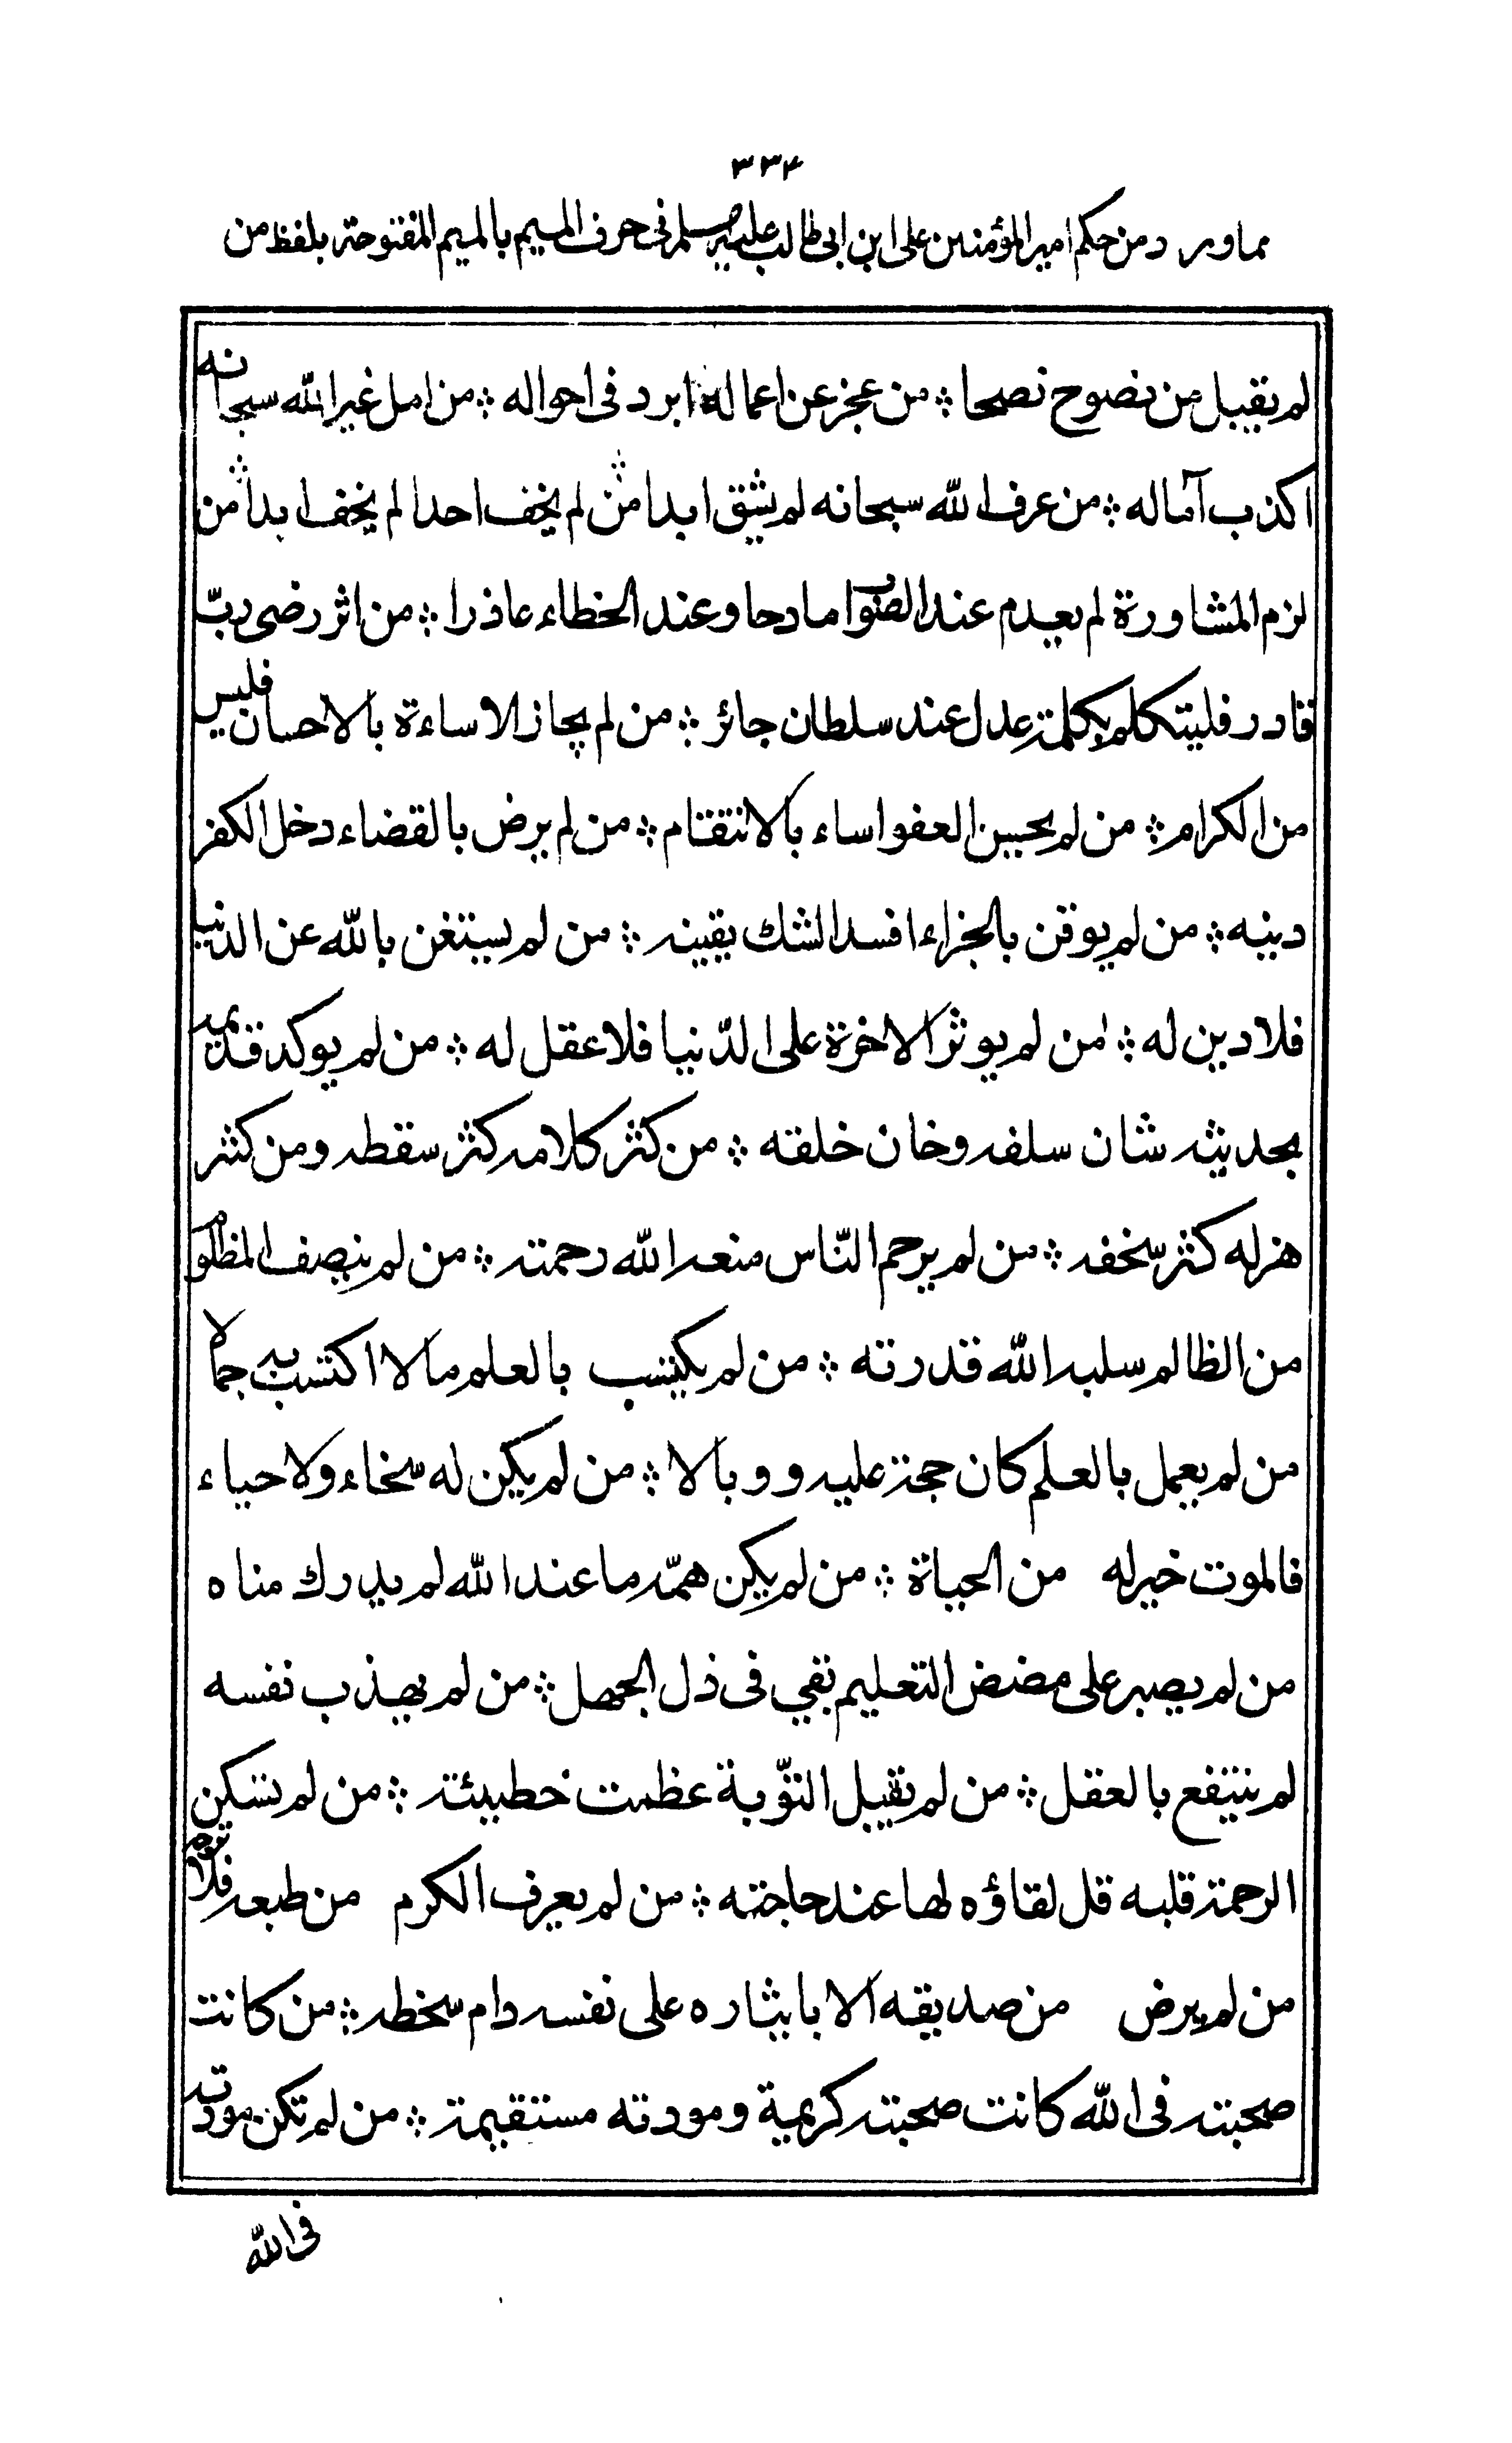 ٣٣٤
مماورد من حكم امير المؤمنين على ابن ابى طالب عليه فى حرف الميم بالميم المفتوحة بلفظ من
لم يقبل من نصوح نصحا ❖ من عجز عن اعماله ادبر فى احواله ❖ من امل غير الله سبحانه
اكذب آماله ❖ من عرف الله سبحانه لم يشق ابدا ❖ من لم يخف احدا لم يخف ابدا ❖ من
لزم المشاورة لم يعدم عند الصواب مادحا وعند الخطاء عاذرا ❖ من اثر رضى ربّ
قادر فليتكلم بكلمة عدل عند سلطان جائر ❖ من لم يجاز الاساءة بالاحسان فليس
من الكرام ❖ من لم يحسن العفو اساء بالانتقام ❖ من لم يرض بالقضاء دخل الكفر
دينه ❖ من لم يوقن بالجزاء افسد الشك يقينه ❖ من لم يستغن بالله عن الدنيا
فلا دين له ❖ من لم يوثر الاخرة على الدّنيا فلا عقل له ❖ من لم يوكد قديمه
بحديثه شان سلفه وخان خلقته ❖ من كثر كلامه كثر سقطه ومن كثر
هزله كثر سخفه ❖ من لم يرحم النّاس منعه الله رحمته ❖ من لم ينصف المظلوم
من الظالم سلبه الله قدرته ❖ من لم يكتسب بالعلم مالا اكتسب به جمالا
من لم يعمل بالعلم كان حجة عليه ووبالا ❖ من لم يكن له سخاء ولا حياء
فالموت خير له من الحياة ❖ من لم يكن همّه ما عند الله لم يدرك مناه
من لم يصبر على مضض التعليم بقي فى ذل الجهل ❖ من لم يهذب نفسه
لم ينتفع بالعقل ❖ من لم يقبل التوّبة عظمت خطيئته ❖ من لم تسكن
الرحمة قلبه قل لقاؤه لها عند حاجته ❖ من لم يعرف الكرم من طبعه فلا ترجه
من لم يرض من صديقه الا بايثاره على نفسه دام سخطه ❖ من كانت
صحبته فى الله كانت صحبته كريمة ومودته مستقيمة ❖ من لم تكن مودته
فى الله